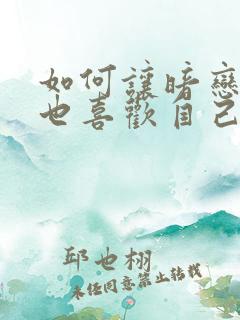 如何讓暗戀
也喜歡自己
邱也栩
未任同意禁止轉載